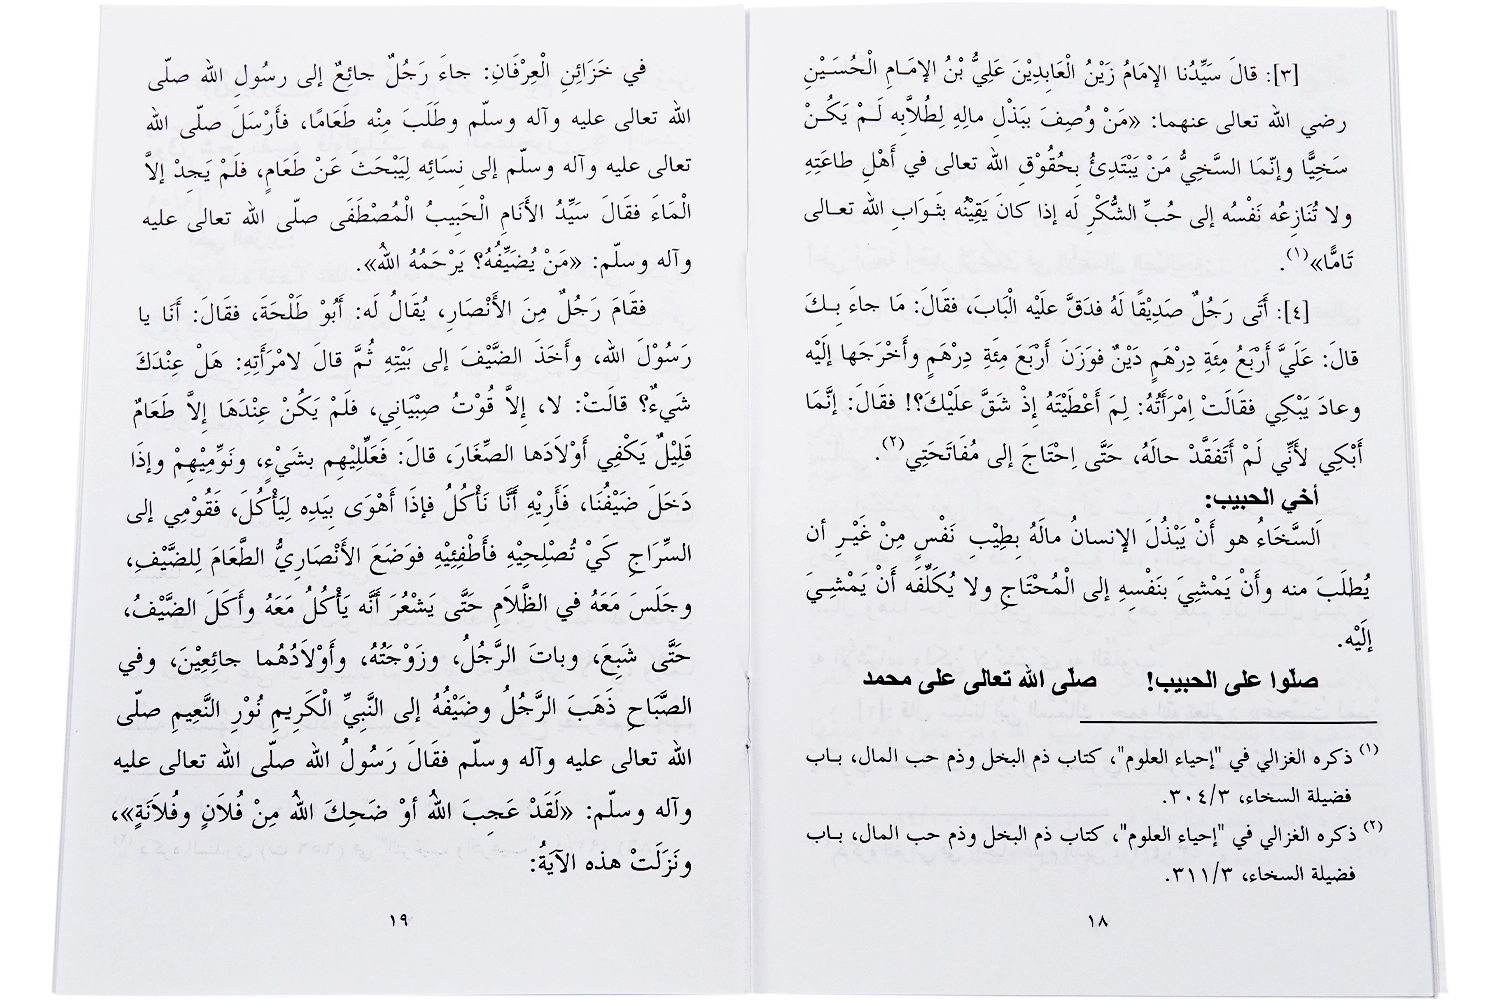 [٣]: قالَ سَيِّدُنا الإمَامُ زَيْنُ الْعَابِدِيْنَ عَلِيُّ بْنُ الإمَـامِ الْحُسَيْنِ
رضي الله تعالى عنهما: «مَنْ وُصِفَ بِبَذْلِ مالِهِ لِطُلاَّبِه لَـمْ يَكُـنْ
سَخِيًّا وإنّمَا السَّخِيُّ مَنْ يَبْتَدِئُ بِحُقُوْقِ الله تعالى في أَهْلِ طاعَتِهِ
ولا تُنَازِعُه نَفْسُه إلى حُبِّ الشُّكْرِ لَه إذا كانَ يَقِيْنُه بثَـوَابِ الله تعـالى
تَامًّا»(١).
[٤]: أَتَى رَجُلٌ صَدِيْقًا لَهُ فدَقَّ علَيْه الْبَابَ، فقَالَ: مَا جاءَ بِـكَ
قالَ: عَلَيَّ أَرْبَعُ مِئَةِ دِرْهَمٍ دَيْنٌ فوَزَنَ أَرْبَعَ مِئَةِ دِرْهَمٍ وأَخْرَجَها إلَيْه
وعادَ يَبْكِي فقَالَتْ اِمْرَأَتُهُ: لِمَ أَعْطَيْتَهُ إذْ شَقَّ علَيْكَ؟! فقَالَ: إنَّمَا
أَبْكِي لأَنِّي لَمْ أَتَفَقَّدْ حالَهُ، حَتَّى اِحْتَاجَ إلى مُفَاتَحَتِي(٢).
أخي الحبيب:
اَلسَّخَاءُ هو أَنْ يَبْذُلَ الإنسانُ مالَهُ بِطِيْبِ نَفْسٍ مِنْ غَيْـرِ أن
يُطلَبَ منه وأَنْ يَمْشِيَ بنَفْسِهِ إلى الْمُحْتَاجِ ولا يُكَلِّفَه أَنْ يَمْشِـيَ
إلَيْه.
صلّوا على الحبيب! صلّى الله تعالى على محمد
(١) ذكره الغزالي في "إحياء العلوم"، كتاب ذم البخل وذم حب المال، بـاب
فضيلة السخاء، ٣/٣٠٤.
(٢) ذكره الغزالي في "إحياء العلوم"، كتاب ذم البخل وذم حب المال، بـاب
فضيلة السخاء، ٣/٣١١.
١٨
في خَزَائِنِ الْعِرْفَانِ: جاءَ رَجُلٌ جائِعٌ إلى رسُولِ الله صلّى
الله تعالى عليه وآله وسلّم وطَلَبَ مِنْه طَعَامًا، فأَرْسَلَ صلّى الله
تعالى عليه وآله وسلّم إلى نِسَائِه لِيَبْحَثَ عَنْ طَعَامٍ، فلَمْ يَجِدْ إلاَّ
الْمَاءَ فقَالَ سَيِّدُ الأَنَامِ الْحَبِيبُ الْمُصْطَفَى صلّى الله تعالى عليه
وآله وسلّم: «مَنْ يُضَيِّفُهُ؟ يَرْحَمُهُ اللهُ».
فقَامَ رَجُلٌ مِنَ الأَنْصَارِ، يُقَالُ لَه: أَبُوْ طَلْحَةَ، فقَالَ: أَنَا يا
رَسُوْلَ الله، وأَخَذَ الضَّيْفَ إلى بَيْتِهِ ثُمَّ قالَ لامْرَأَتِهِ: هَلْ عِنْدَكَ
شَيءٌ؟ قالَتْ: لا، إلاَّ قُوْتُ صِبْيَانِي، فلَمْ يَكُنْ عِنْدَهَا إلاَّ طَعَامٌ
قَلِيْلٌ يَكْفِي أَوْلاَدَها الصِّغَارَ، قالَ: فعَلِّلِيْهِم بشَيْءٍ، ونَوِّمِيْهِمْ وإذَا
دَخَلَ ضَيْفُنَا، فَأَرِيْهِ أَنَّا نَأْكُلُ فإذَا أَهْوَى بِيَدِه لِيَأْكُلَ، فَقُوْمِي إلى
السِّرَاجِ كَيْ تُصْلِحِيْهِ فأَطْفِئِيْهِ فوَضَعَ الأَنْصَارِيُّ الطَّعَامَ لِلضَّيْفِ،
وجَلَسَ مَعَهُ في الظَّلاَمِ حَتَّى يَشْعُرَ أَنَّه يَأْكُلُ مَعَهُ وأَكَلَ الضَّيْفُ،
حَتَّى شَبِعَ، وباتَ الرَّجُلُ، وزَوْجَتُهُ، وأَوْلاَدُهُما جائِعِيْنَ، وفي
الصَّبَاحِ ذَهَبَ الرَّجُلُ وضَيْفُهُ إلى النَّبِيِّ الْكَرِيمِ نُوْرِ النَّعِيمِ صلّى
الله تعالى عليه وآله وسلّم فقَالَ رَسُولُ الله صلّى الله تعالى عليه
وآله وسلّم: «لَقَدْ عَجِبَ اللهُ أَوْ ضَحِكَ اللهُ مِنْ فُلاَنٍ وفُلاَنَةٍ»،
ونَزَلَتْ هذه الآيَةُ:
١٩